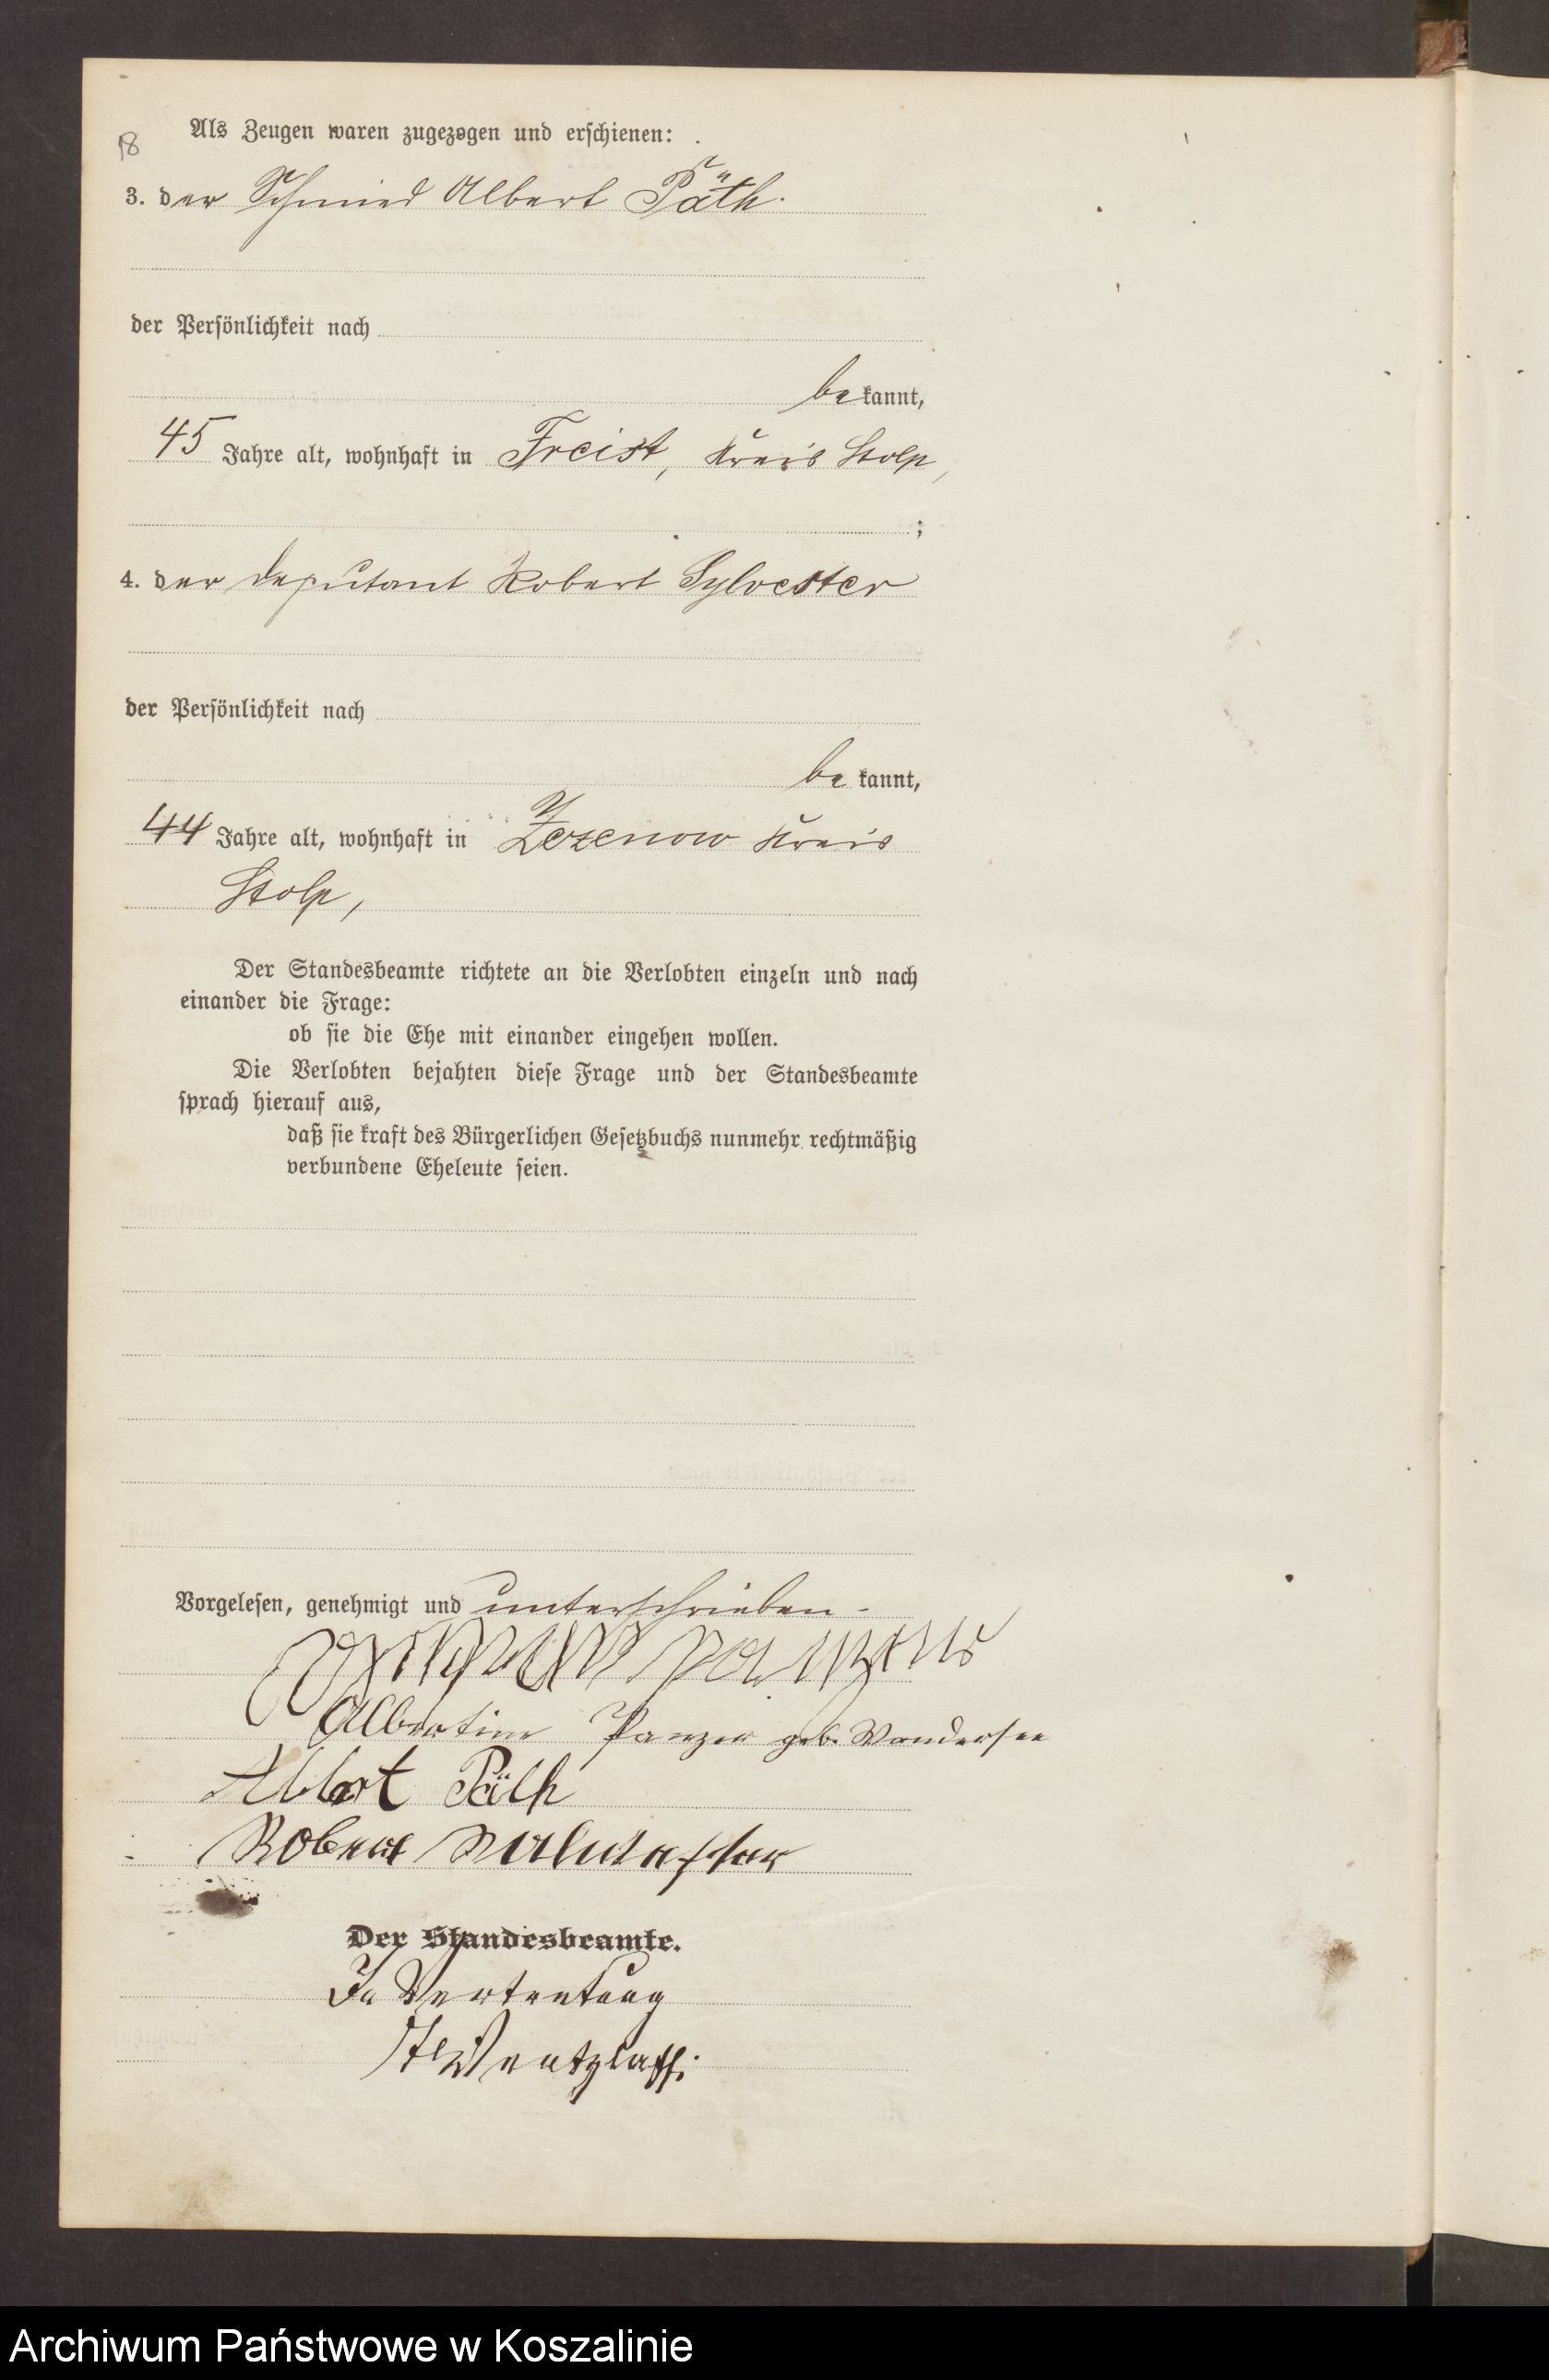 18
Als Zeugen waren zugezogen und erschienen:
3. der Schmied Albert Päth.
der Persönlichkeit nach
bekannt,
45 Jahre alt, wohnhaft in Freist, Kreis Stolp,
;
4. der Deputant Robert Sylvester
der Persönlichkeit nach
be kannt,
44 Jahre alt, wohnhaft in Zezenow Kreis
Stolp,
Der Standesbeamte richtete an die Verlobten einzeln und nach
einander die Frage:
ob sie die Ehe mit einander eingehen wollen.
Die Verlobten bejahten diese Frage und der Standesbeamte
sprach hierauf aus,
daß sie kraft des Bürgerlichen Gesetzbuchs nunmehr rechtmäßig
verbundene Eheleute seien.
Vorgelesen, genehmigt und unterschrieben.
Albertine Panzer geb. Wandersee
Albert Päth
Robert
Der Standesbeamte.
In Vertretung
Wentzlaff.
Archiwum Państwowe w Koszalinie